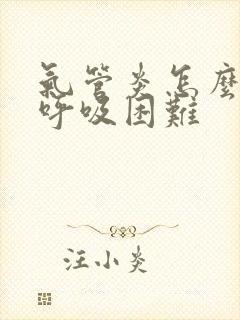 氣管炎怎麼
呼吸困難
汪小炎